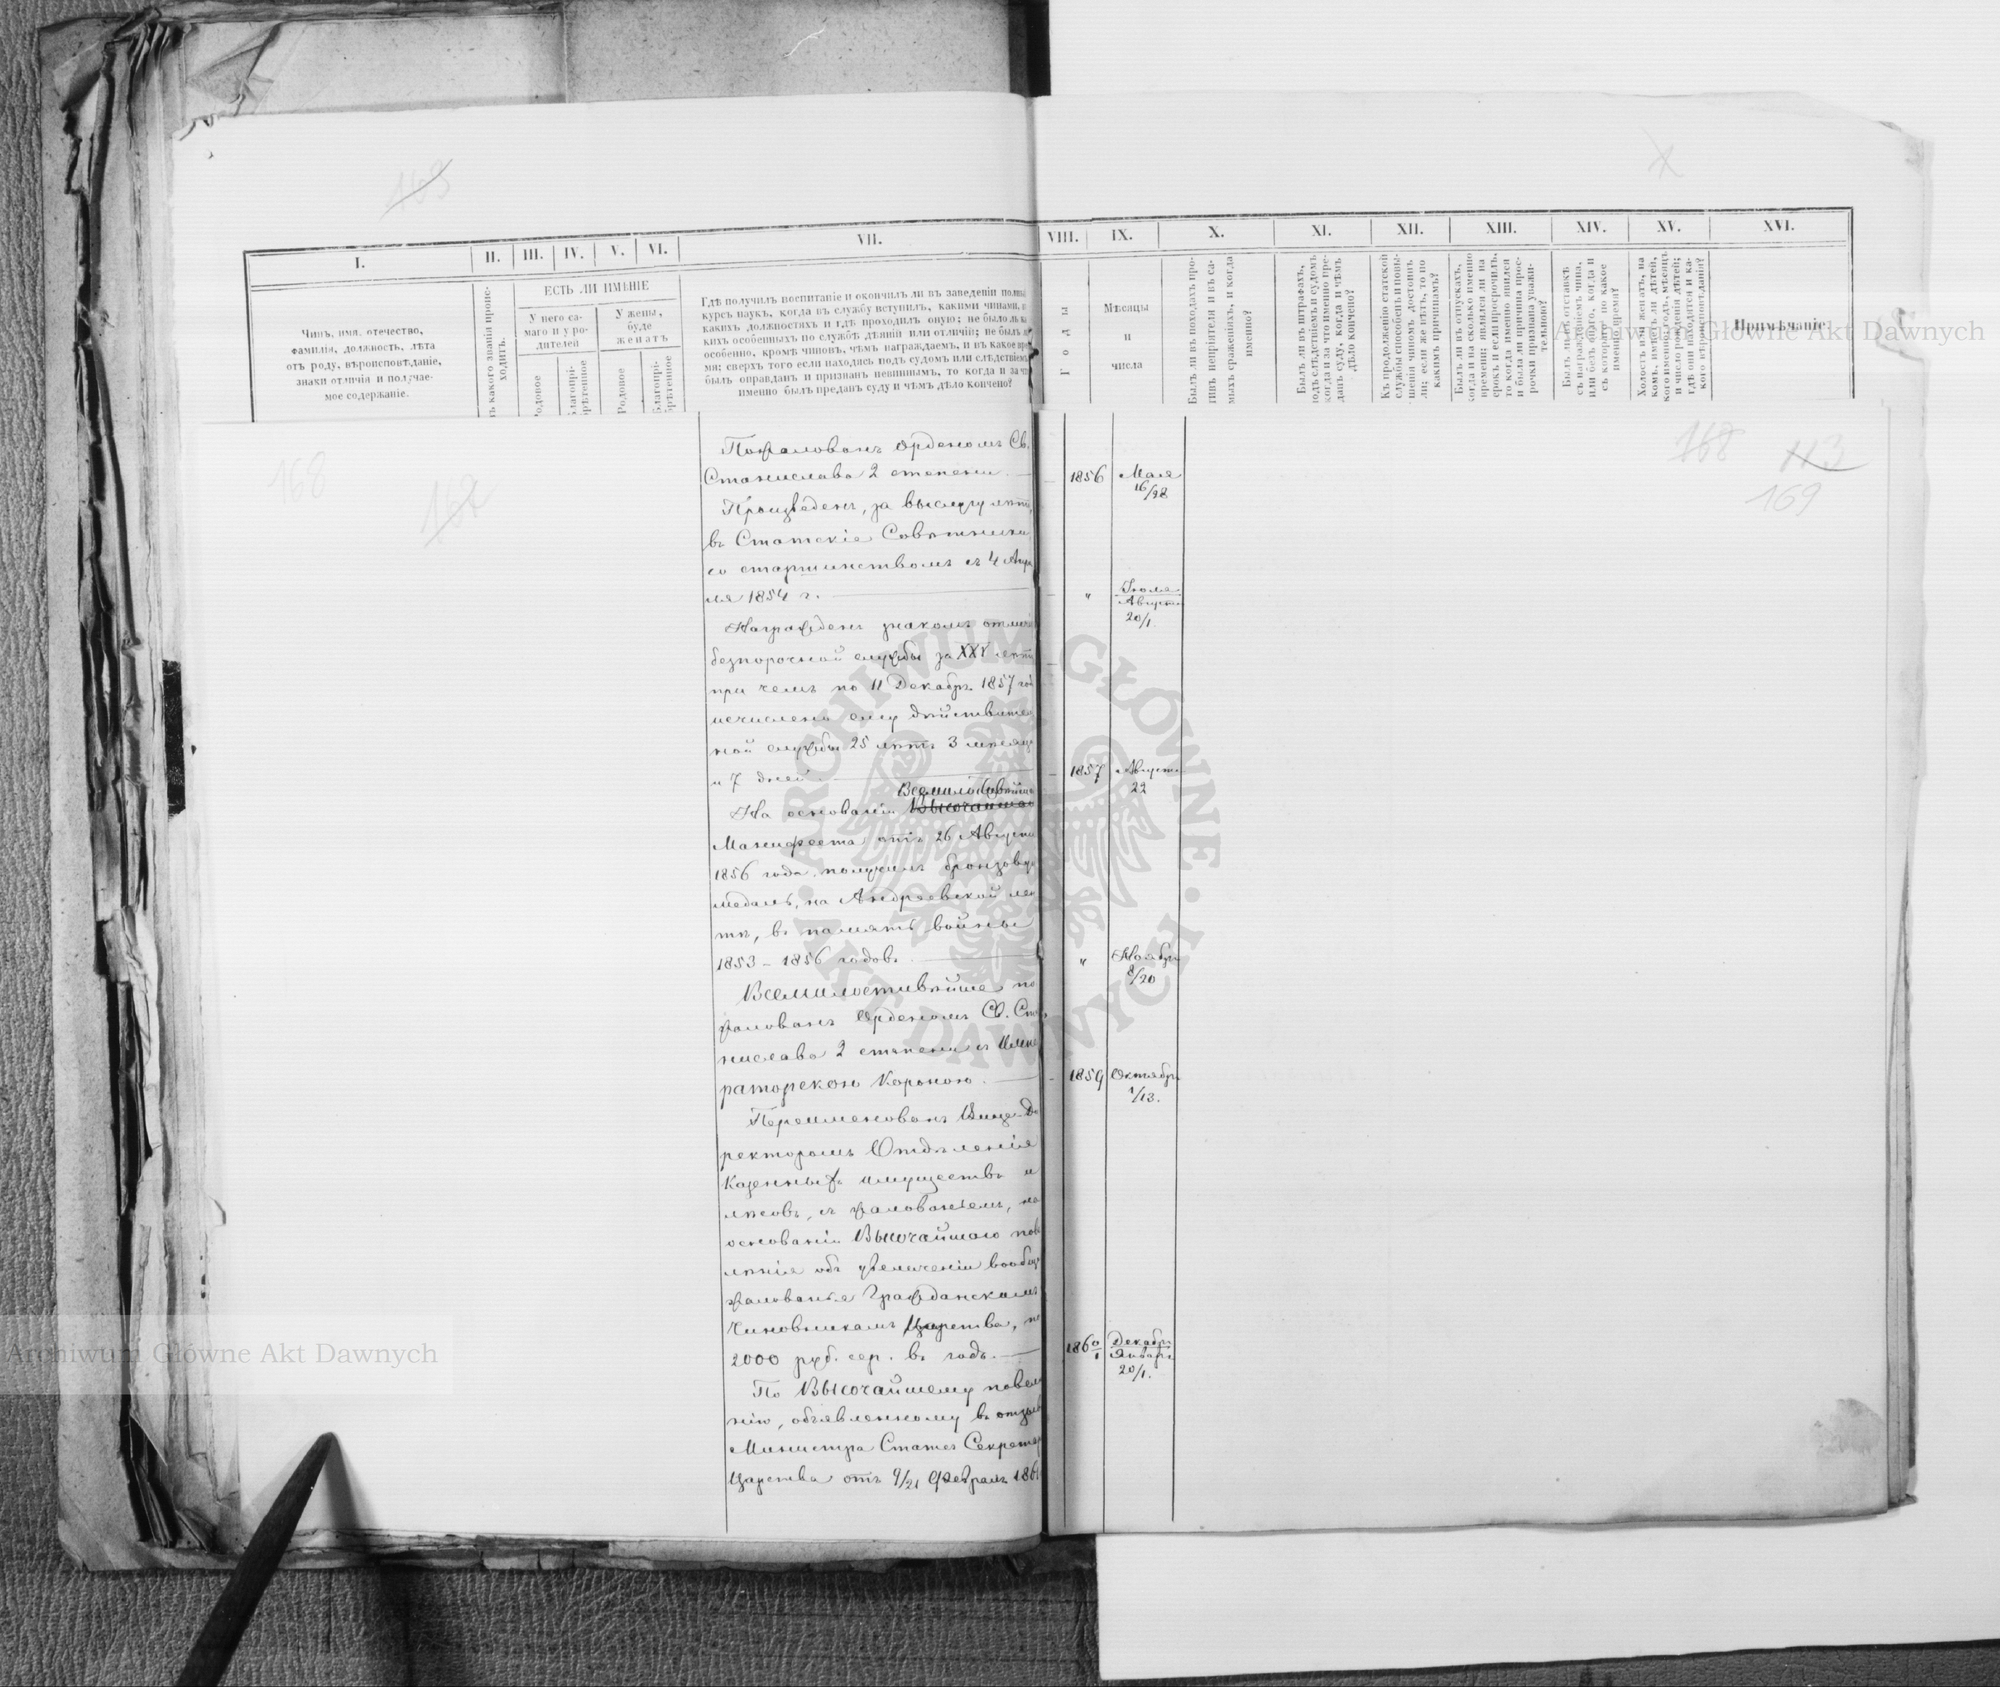 163
X
I. II. III. IV. V. VI. VII. VIII. IX. X. XI. XII. XIII. XIV. XV. XVI.
Чинъ, имя, отечество,
фамилія, должность, лѣта
отъ роду, вѣроисповѣданіе,
знаки отличія и получае-
мое содержаніе.
Изъ какого званія проис-
ходитъ.
ЕСТЬ ЛИ ИМѢНІЕ
У него са-
маго и у ро-
дителей
У жены,
буде
женатъ
Родовое
Благопрі-
обрѣтенное
Родовое
Благопрі-
обрѣтенное
Гдѣ получилъ воспитаніе и окончилъ ли въ заведеніи полный
курсъ наукъ, когда въ службу вступилъ, какими чинами, въ
какихъ должностяхъ и гдѣ проходилъ оную; не было ли ка-
кихъ особенныхъ по службѣ дѣяній или отличій; не былъ ли
особенно, кромѣ чиновъ, чѣмъ награждаемъ, и въ какое вре-
мя; сверхъ того если находясь подъ судомъ или слѣдствіемъ
былъ оправданъ и признанъ невиннымъ, то когда и за что
именно былъ преданъ суду и чѣмъ дѣло кончено?
Годы
Мѣсяцы
и
числа
Былъ ли въ походахъ про-
тивъ непріятеля и въ са-
мыхъ сраженіяхъ, и когда
именно?
Былъ ли въ штрафахъ,
подъ слѣдствіемъ и судомъ
когда и за что именно пре-
данъ суду, когда и чѣмъ
дѣло кончено?
Къ продолженію статской
службы способенъ и повы-
шенія чиномъ достоинъ
ли; если же нѣтъ, то по
какимъ причинамъ?
Былъ ли въ отпускахъ,
когда и на сколько именно
времени; являлся ли на
срокъ и если просрочилъ,
то когда именно явился
и была ли причина прос-
рочки признана уважи-
тельною?
Былъ ли въ отставкѣ
съ награжденіемъ чина,
или безъ онаго, когда и
съ котораго по какое
именно время?
Холостъ или женатъ, на
комъ, имѣетъ ли дѣтей,
кого именно; годъ, мѣсяцъ
и число рожденія дѣтей;
гдѣ они находятся и ка-
кого вѣроисповѣданія?
Примѣчаніе
168
162
168
113
169
Пожалованъ Орденомъ Св.
Станислава 2 степени.
1856 Мая
16/28
Произведенъ, за выслугу лѣтъ,
въ Статскіе Совѣтники
со старшинствомъ съ 4 Апрѣ
ля 1854 г.
" Іюля
Августа
20/1.
Награжденъ знакомъ отличі
безпорочной службы за XXV лѣтъ
при чемъ по 11 Декабр. 1857 год
исчислено ему дѣйствител
ной службы 25 лѣтъ 3 мѣсяца
и 7 дней
1857 Августа
22
Всемилостивѣйша
На основаніи Высочайшаго
Манифеста отъ 26 Августа
1856 года, получилъ бронзовую
медаль, на Андреевской лен
тѣ, въ память войны
1853 – 1856 годовъ.
" Ноября
8/20
Всемилостивѣйше по
жалованъ Орденомъ Св. Ста
нислава 2 степени съ Импе
раторскою Короною.
1859 Октября
1/13.
Переименованъ Вице-Ди
ректоромъ Отдѣленія
Казенныхъ имуществъ и
лѣсовъ, съ жалованьемъ, на
основаніи Высочайшаго пове
лѣнія объ увеличеніи вообще
жалованья Гражданскимъ
Чиновникамъ Царства, по
2000 руб. сер. въ годъ.
1860/1 Декабря
Января
20/1.
По Высочайшему повелѣ
нію, объявленному въ отзывѣ
Министра Статсъ Секретар
Царства отъ 9/21 Февраля 1861
Archiwum Główne Akt Dawnych
Archiwum Główne Akt Dawnych
ARCHIWUM GŁÓWNE AKT DAWNYCH